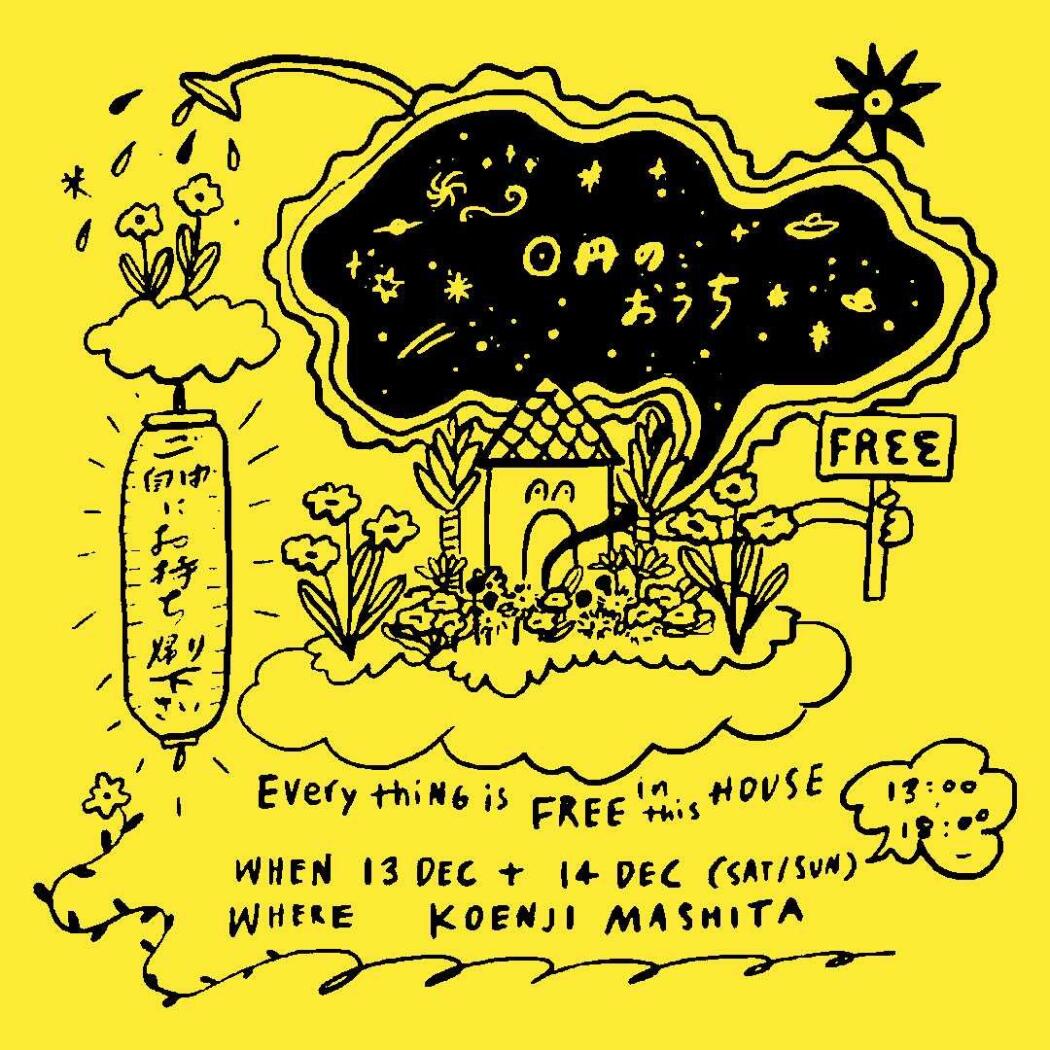 0円の
おうち
FREE
ご自由にお持ち帰り下さい
Everything is FREE in this HOUSE
13:00
18:00
WHEN 13 DEC + 14 DEC (SAT/SUN)
WHERE KOENJI MASHITA